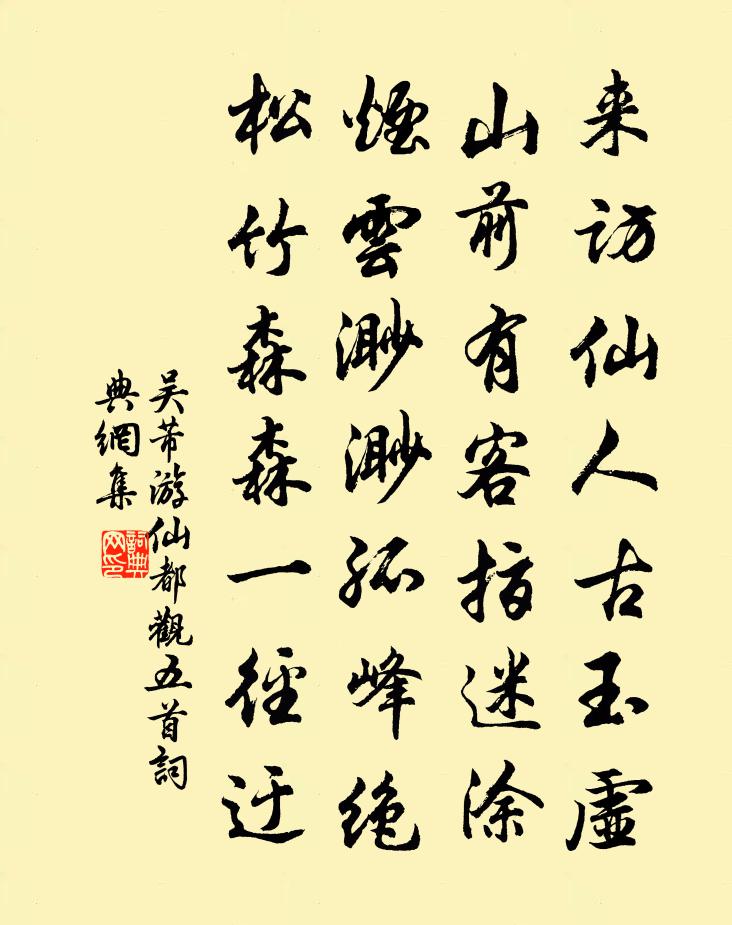 来访仙人古玉虚
山前有客指迷涂
煙雲渺渺孤峰绝
松竹森森一径迂
吴芾游仙都觀五首詞
典網集
詞典网印